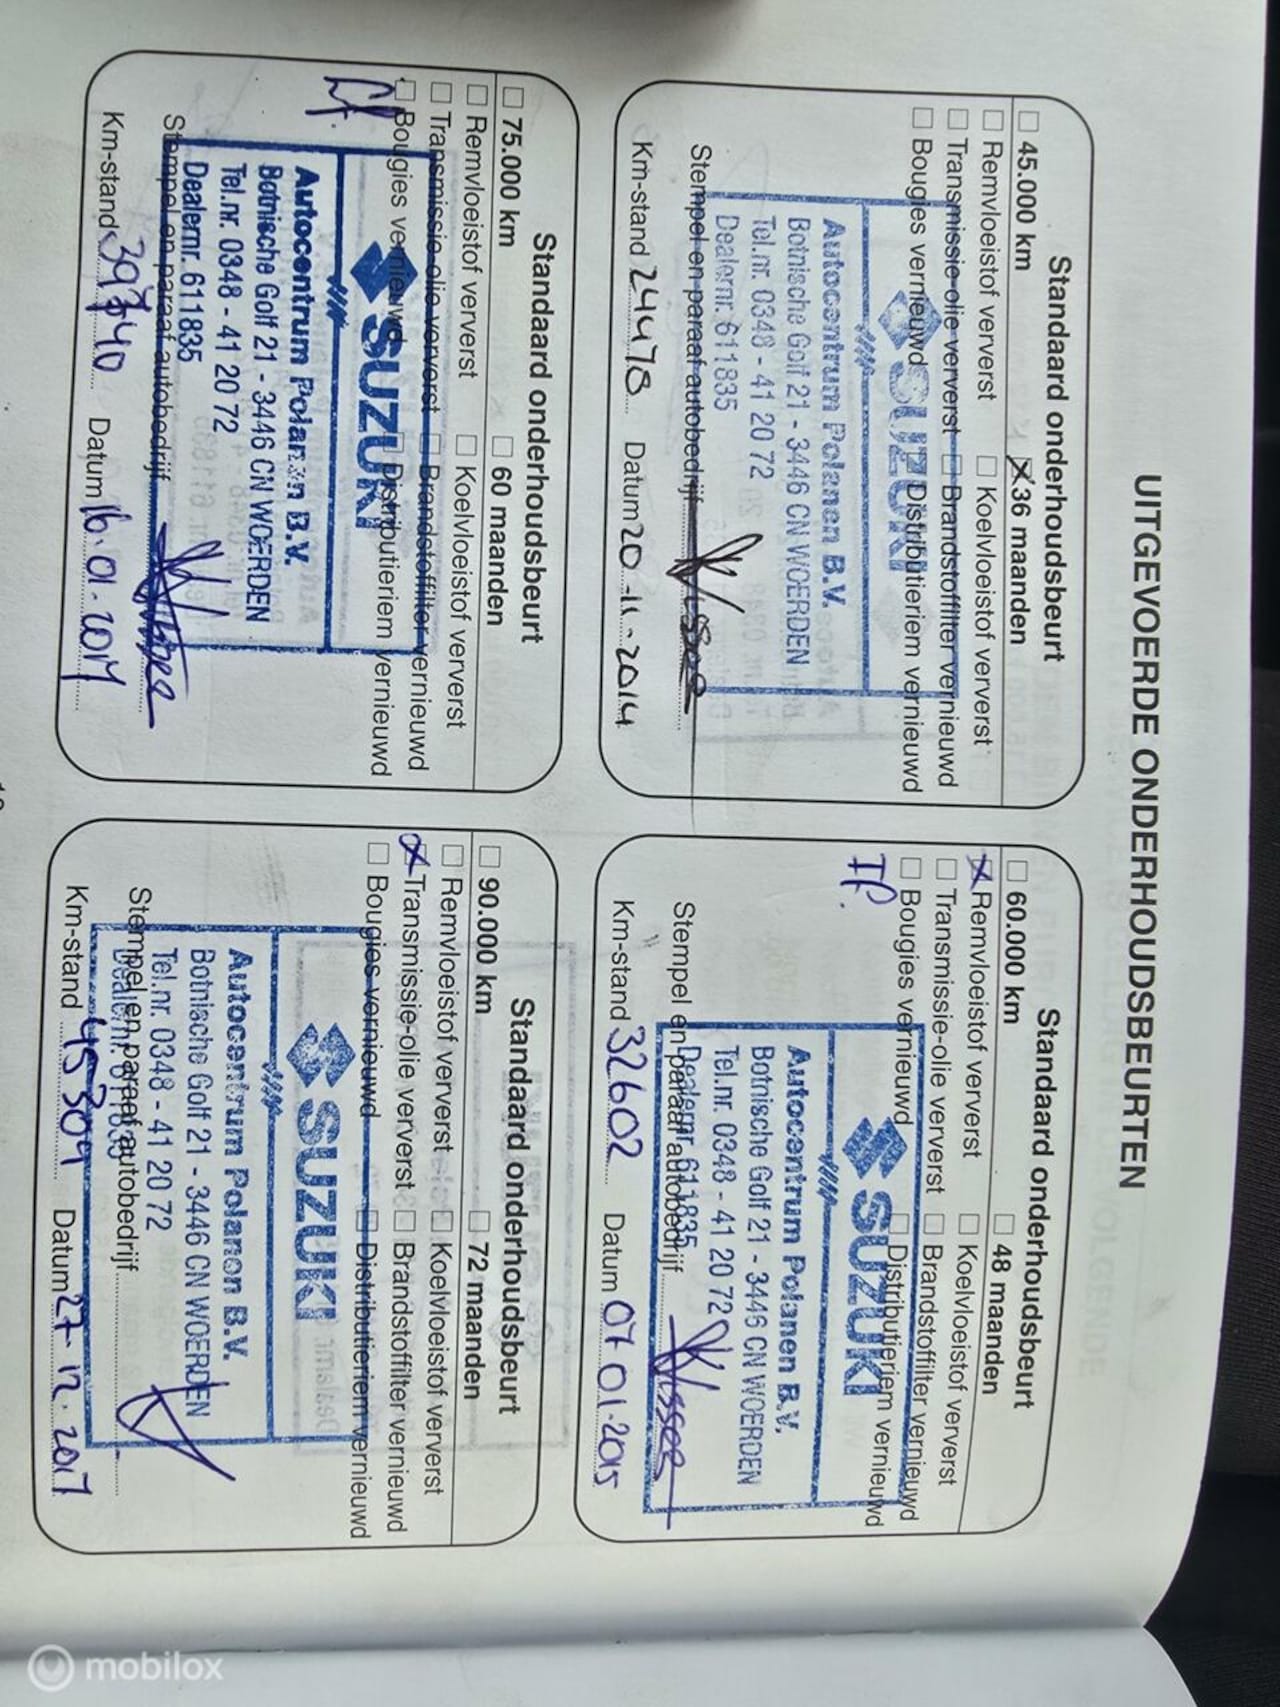 UITGEVOERDE ONDERHOUDSBEURTEN
Standaard onderhoudsbeurt
45.000 km 36 maanden
Remvloeistof ververst Koelvloeistof ververst
Transmissie-olie ververst Brandstoffilter vernieuwd
Bougies vernieuwd Distributieriem vernieuwd
SUZUKI
Autocentrum Polanen B.V.
Botnische Golf 21 - 3446 CN WOERDEN
Tel.nr. 0348 - 41 20 72
Dealernr. 611835
Stempel en paraaf autobedrijf
Km-stand 24478 Datum 20-11-2014
Standaard onderhoudsbeurt
60.000 km 48 maanden
Remvloeistof ververst Koelvloeistof ververst
Transmissie-olie ververst Brandstoffilter vernieuwd
Bougies vernieuwd Distributieriem vernieuwd
SUZUKI
Autocentrum Polanen B.V.
Botnische Golf 21 - 3446 CN WOERDEN
Tel.nr. 0348 - 41 20 72
Dealernr. 611835
Stempel en paraaf autobedrijf
Km-stand 32602 Datum 07 01-2015
Standaard onderhoudsbeurt
75.000 km 60 maanden
Remvloeistof ververst Koelvloeistof ververst
Transmissie-olie ververst Brandstoffilter vernieuwd
Bougies vernieuwd Distributieriem vernieuwd
SUZUKI
Autocentrum Polanen B.V.
Botnische Golf 21 - 3446 CN WOERDEN
Tel.nr. 0348 - 41 20 72
Dealernr. 611835
Stempel en paraaf autobedrijf
Km-stand Datum 16.01.2017
Standaard onderhoudsbeurt
90.000 km 72 maanden
Remvloeistof ververst Koelvloeistof ververst
Transmissie-olie ververst Brandstoffilter vernieuwd
Bougies vernieuwd Distributieriem vernieuwd
SUZUKI
Autocentrum Polanen B.V.
Botnische Golf 21 - 3446 CN WOERDEN
Tel.nr. 0348 - 41 20 72
Dealernr. 611835
Stempel en paraaf autobedrijf
Km-stand 45309 Datum 27-12-2017
mobilox